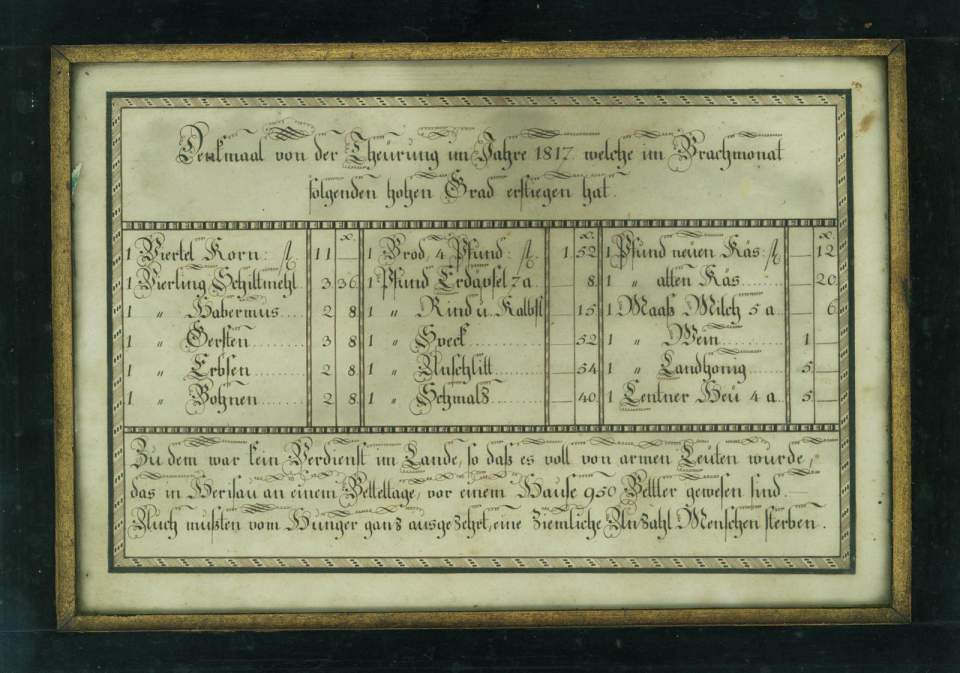 Denkmaal von der Theürung im Jahre 1817. welche im Brachmonat
folgenden hohen Grad erstiegen hat.
x. x. x.
1 Viertel Korn: fl. 11 — 1 Brod, 4 Pfund: fl. 1. 52 1 Pfund neüen Käs: fl. — 12
1 Vierling Schiltmehl 3 36 1 Pfund Erdäpfel 7 a — 8 1 „ alten Käs — 20
1 „ Habermus 2 8 1 „ Rind u. Kalbfl — 15 1 Maaß Milch 5 a — 6
1 „ Gersten 3 8 1 „ Speck — 52 1 „ Wein 1 —
1 „ Erbsen 2 8 1 „ Unschlitt — 54 1 „ Landhonig 5 —
1 „ Bohnen 2 8 1 „ Schmalz — 40 1 Centner Heü 4 a 5 —
Zu dem war kein Verdienst im Lande, so daß es voll von armen Leuten wurde,
das in Herisau an einem Betteltage, vor einem Hause 950 Bettler gewesen sind.
Auch mußten vom Hunger ganz ausgezehrt, eine ziemliche Anzahl Menschen sterben.